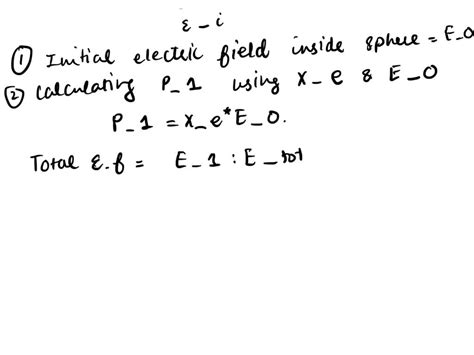 ε_i
① Initial electric field inside sphere = E_0
② Calculating P_1 using X_e & E_0
P_1 = X_e*E_0.
Total E.f = E_1 : E_tot